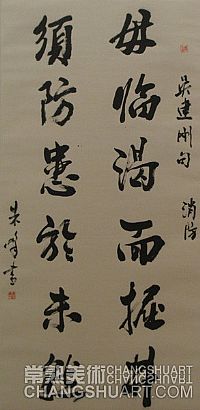 吴建刚句 消防
毋临渴而掘井
须防患於未然
朱峰书
常熟美術 CHANGSHUART
CHANGSHUART.COM